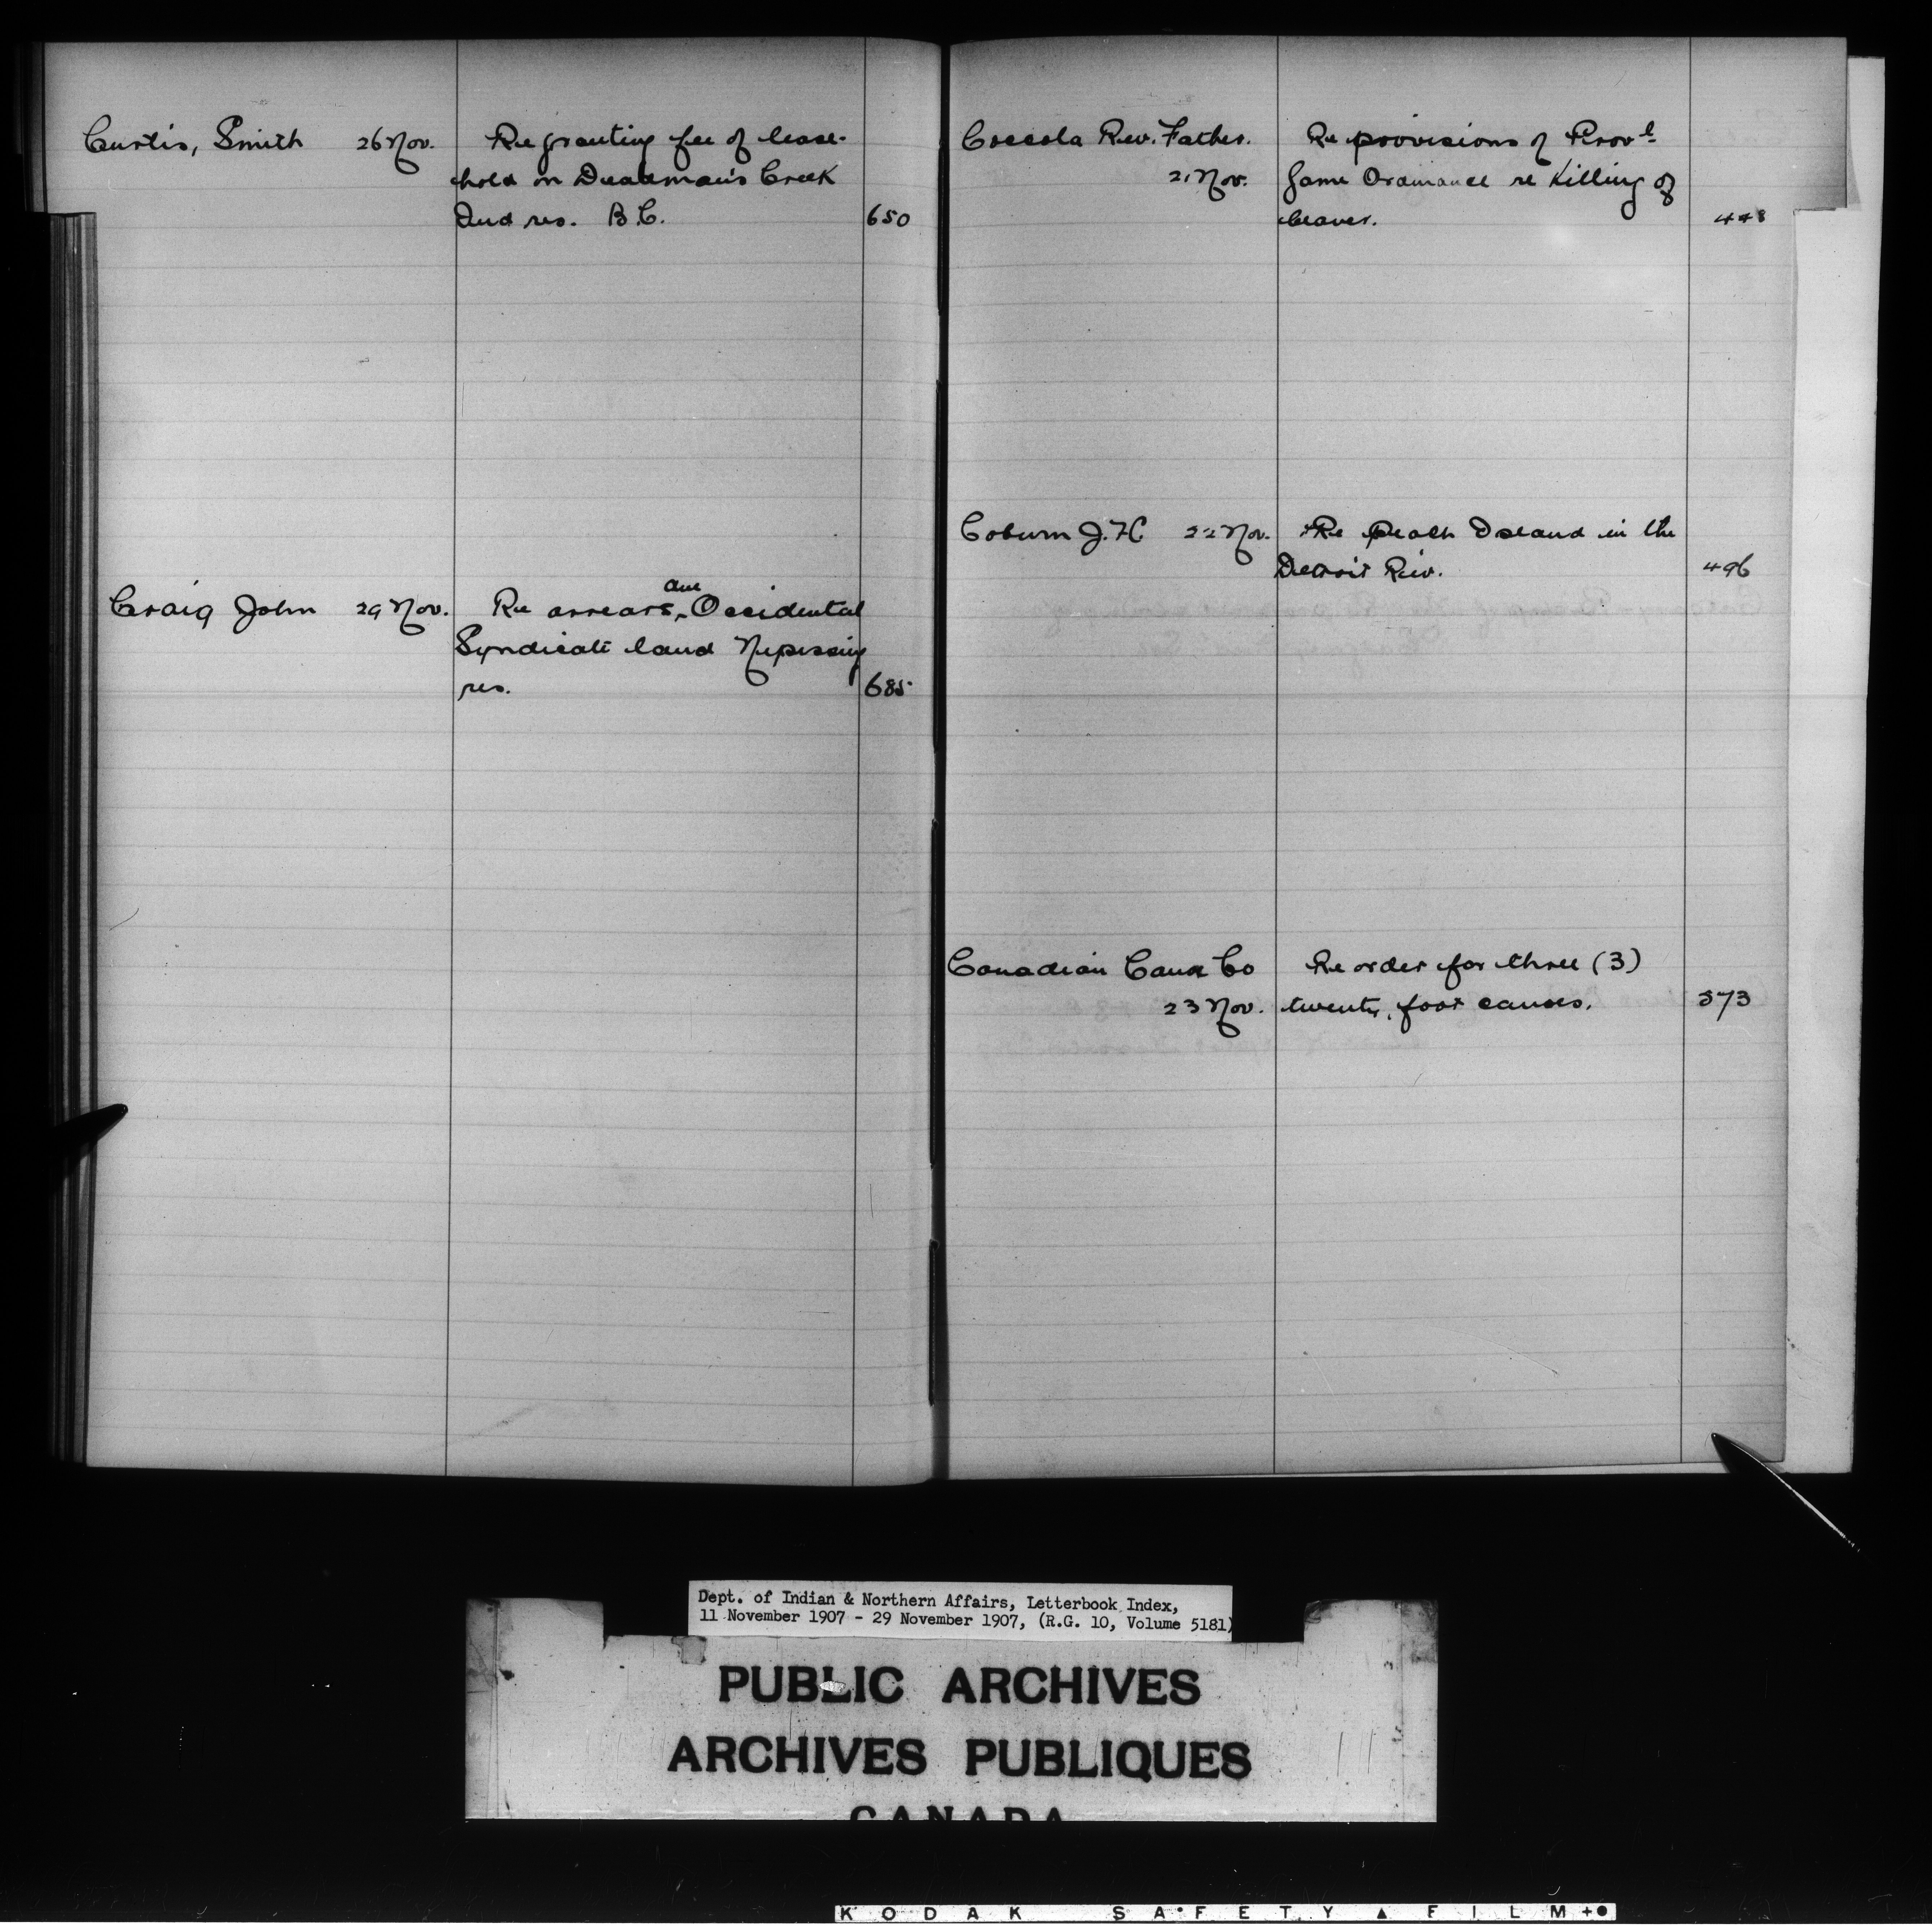 Curtis, Smith 26 Nov. Re granting fee of lease-
hold on Deadman's Creek
Ind res. B.C. 650
Craig John 29 Nov. Re arrears due Occidental
Syndicate land Nipissing
res. 685
Coccola Rev. Father. Re provisions of Prov'l
21 Nov. Game Ordinance re Killing of
beaver. 448
Coburn J. H. 22 Nov. Re Peach Island in the
Detroit Riv. 496
Canadian Canoe Co Re order for three (3)
23 Nov. twenty foot canoes. 573
Dept. of Indian & Northern Affairs, Letterbook Index,
11 November 1907 - 29 November 1907, (R.G. 10, Volume 5181)
PUBLIC ARCHIVES
ARCHIVES PUBLIQUES
CANADA
KODAK SAFETY ▲ FILM +●